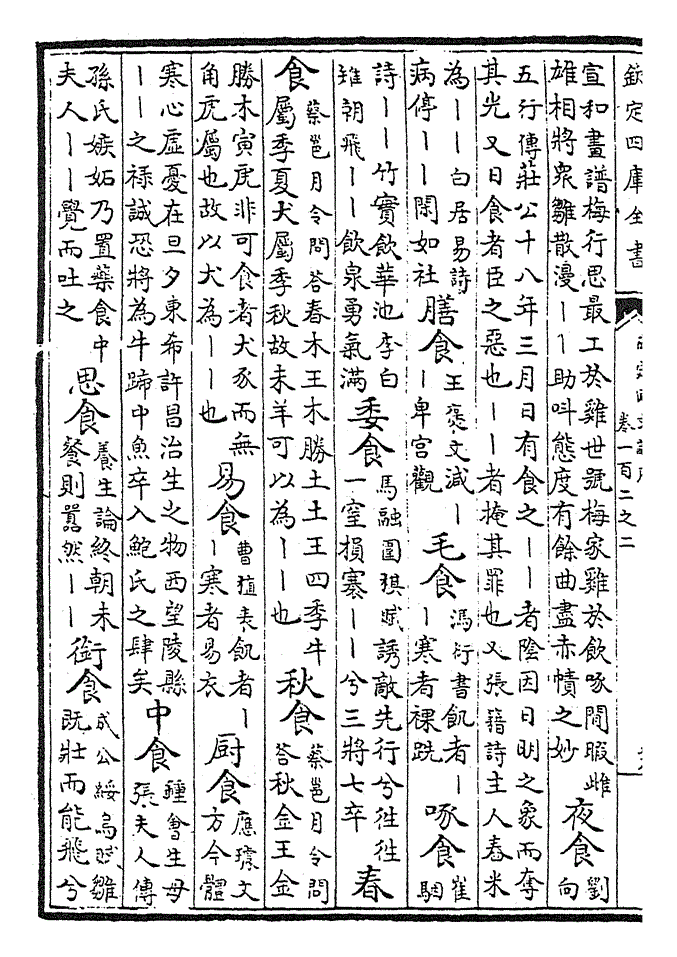 欽定四庫全書
卷一百二之二
宣和畫譜梅行思最工於雞世號梅家雞於飲啄間暇雌
雄相將衆雛散漫丨丨助叫態度有餘曲盡赤幘之妙
夜食
劉
向
五行傳莊公十八年三月日有食之丨丨者陰因日明之象而奪
其光又曰食者臣之惡也丨丨者掩其罪也又張籍詩主人舂米
為丨丨白居易詩
病停丨丨閑如社
膳食
王褒文減丨
丨卑宮觀
毛食
馮衍書飢者丨
丨寒者裸跣
啄食
崔
駰
詩丨丨竹實飲華池李白
雉朝飛丨丨飲泉勇氣滿
委食
馬融圍棋賦誘敵先行兮往往
一窒損褰丨丨兮三將七卒
春
食
蔡邕月令問荅春木王木勝土土王四季牛
屬季夏犬屬季秋故未羊可以為丨丨也
秋食
蔡邕月令問
荅秋金王金
勝木寅虎非可食者犬豕而無
角虎屬也故以犬為丨丨也
易食
曹植表飢者丨
丨寒者易衣
厨食
應璩文
方今體
寒心虛憂在旦夕東希許昌治生之物西望陵縣
丨丨之祿誠恐將為牛蹄中魚卒入鮑氏之肆矣
中食
鍾會生母
張夫人傳
孫氏嫉妬乃置藥食中
夫人丨丨覺而吐之
思食
養生論終朝未
餐則囂然丨丨
銜食
成公綏烏賦雛
既壯而能飛兮